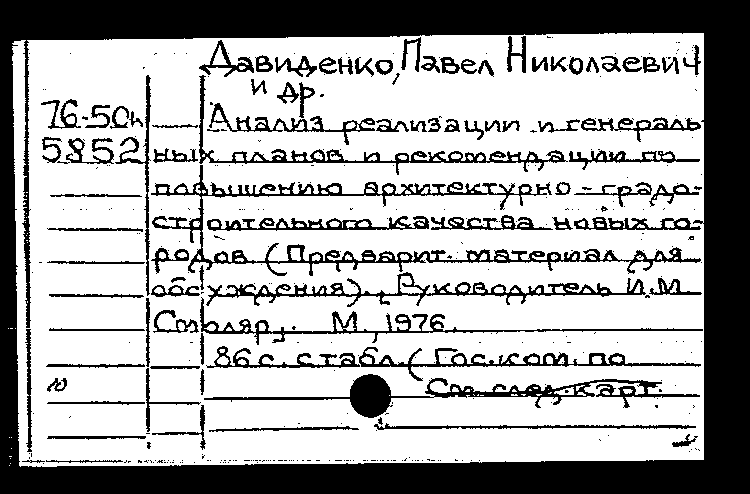 Давиденко, Павел Николаевич
и др.
76-50к
5852
Анализ реализации и генераль-
ных планов и рекомендации по
повышению архитектурно-градо-
строительного качества новых го-
родов (Предварит. материал для
обсуждения). Руководитель И.М.
Смоляр. М., 1976.
86 с. с табл. (Гос. ком. по
См. след. карт.